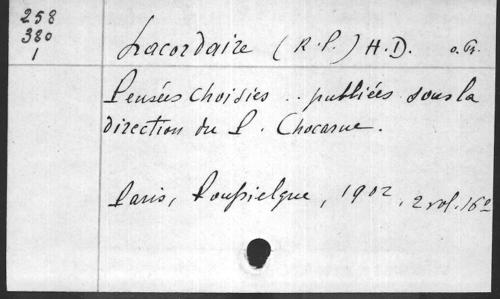 258
380
1
Lacordaire (R.P.) H.D. o.Pr.
Pensées choisies .. publiées sous la
direction du P. Chocarne.
Paris, Poussielgue, 1902, 2 vol. 16º